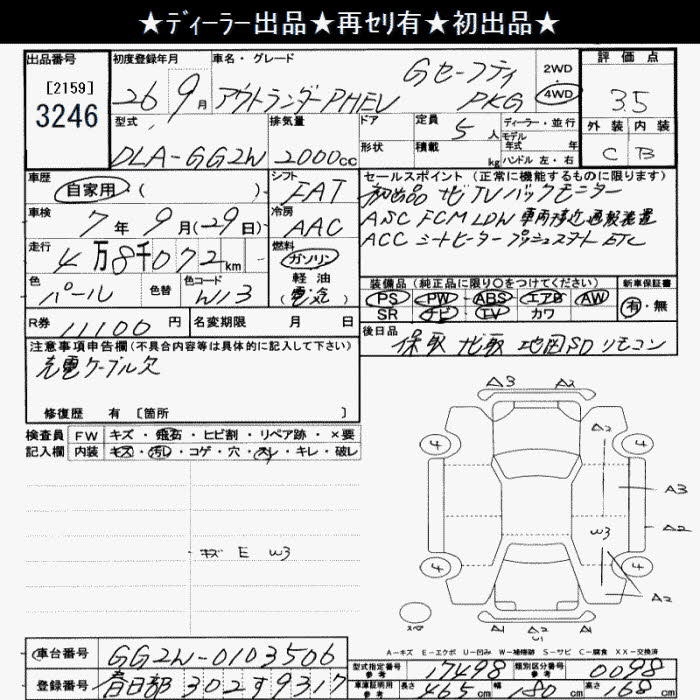 ★ﾃﾞｨｰﾗｰ出品★再ｾﾘ有★初出品★
出品番号
[2159]
3246
初度登録年月
26 9月
車名・グレード
アウトランダーPHEV Gセーフティ PKG
2WD
4WD
評価点
3.5
外装 内装
C B
型式
DLA-GG2W
排気量
2000cc
ドア
形状
定員 5人
積載 kg
ディーラー・並行
モデル
年式 年
ハンドル 左・右
車歴
自家用 ( )
シフト
FAT
セールスポイント (正常に機能するものに限ります)
初出品 ナビTV バックモニター
ASC FCM LDW 車両接近通報装置
ACC シートヒーター プッシュスタート ETC
車検
7年 9月(29日)
冷房
AAC
走行
4万8千072km
燃料
ガソリン
軽油
色
パール
色替
色コード
W13
装備品 (純正品に限り○をつけてください)
PS PW ABS エアB AW
SR ナビ TV カワ
新車保証書
有・無
R券 11100円
名変期限 月 日
後日品
保取 ナビ取 地図SD リモコン
注意事項申告欄(不具合内容等は具体的に記入して下さい)
充電ケーブル欠
修復歴 有 [箇所 ]
検査員
記入欄
FW キズ・飛石・ヒビ割・リペア跡・×要
内装 キズ・汚れ・コゲ・穴・スレ・キレ・破レ
キズ E W3
A3 A2
4 A2 4
A3
A2
W3
4 4
A2
スペア
A1 A2 U1 A1
A－キズ E－エクボ U－凹み W－補修跡 S－サビ C－腐食 XX－交換済
車台番号 GG2W-0103506
登録番号 春日部 302す9317
型式指定番号
参考
17498
類別区分番号
参考
0098
車庫証明用
参考
長さ 465cm 幅 180cm 高さ 168cm